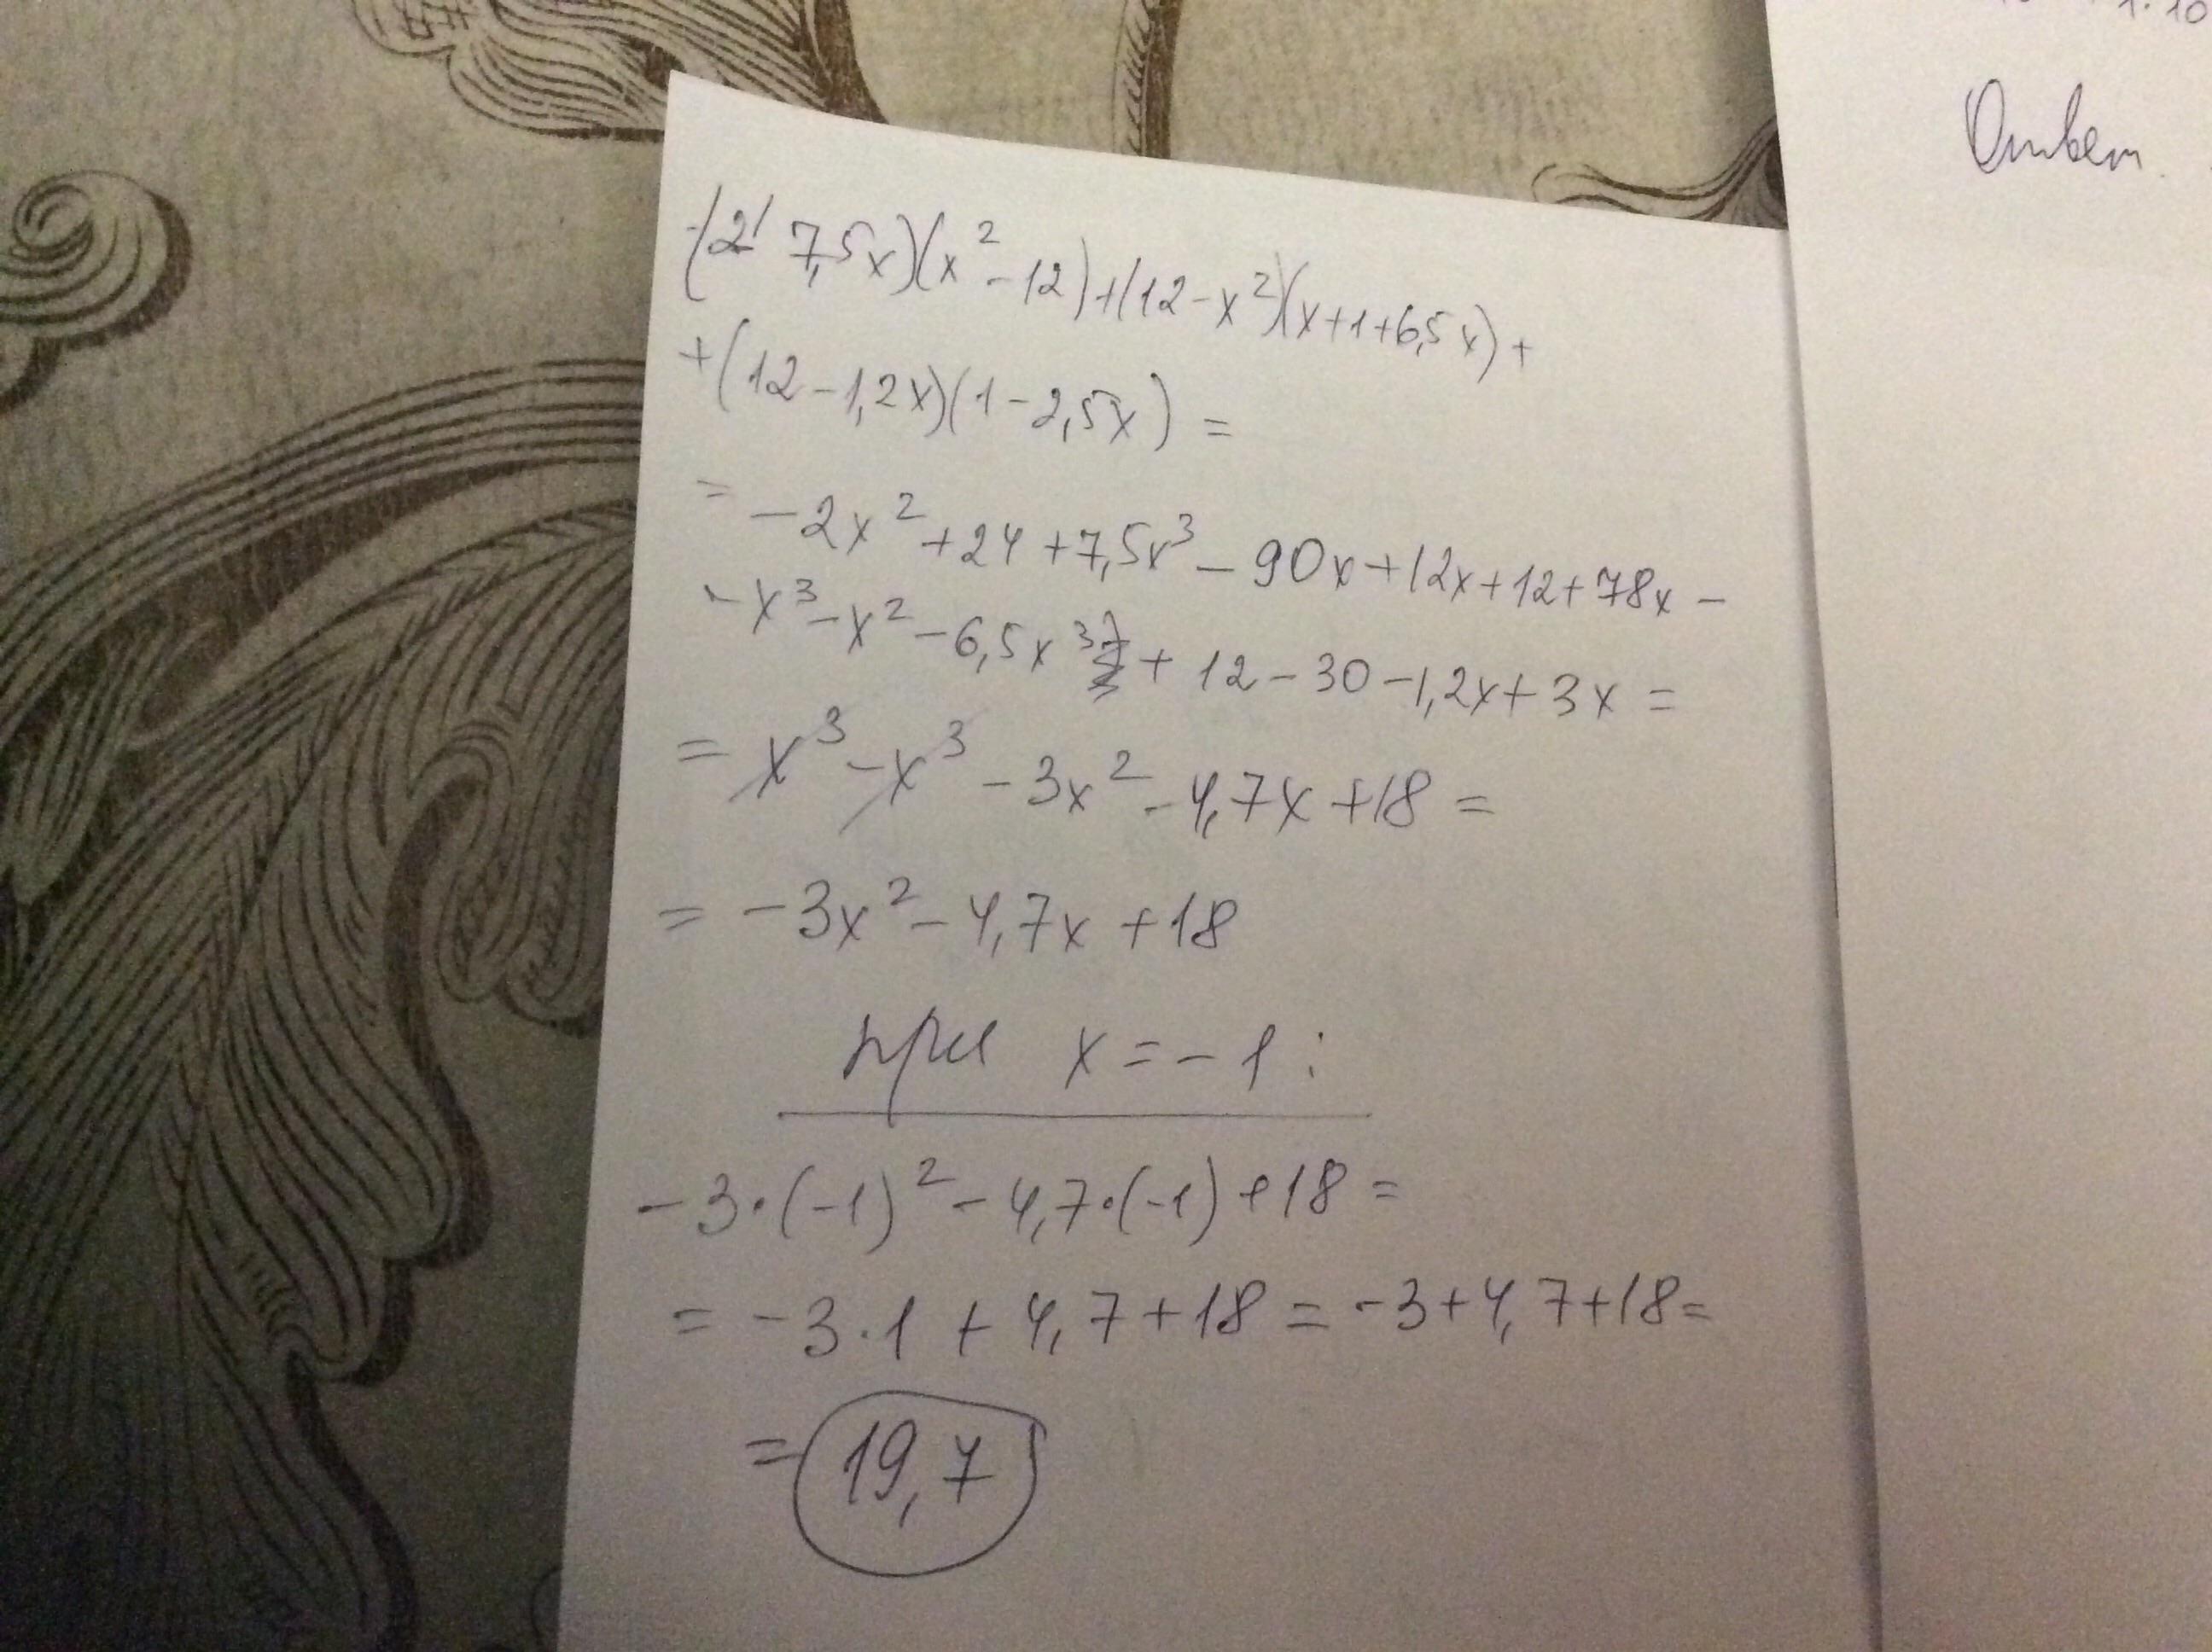 -(2 7,5x)(x²-12)+(12-x²)(x+1+6,5x)+
+(12-1,2x)(1-2,5x)=
=-2x²+24+7,5x³-90x+12x+12+78x-
-x³-x²-6,5x³+12-30-1,2x+3x=
=x³-x³-3x²-4,7x+18=
=-3x²-4,7x+18
при x=-1:
-3·(-1)²-4,7·(-1)+18=
=-3·1+4,7+18=-3+4,7+18=
=19,7
1·10
Ответ